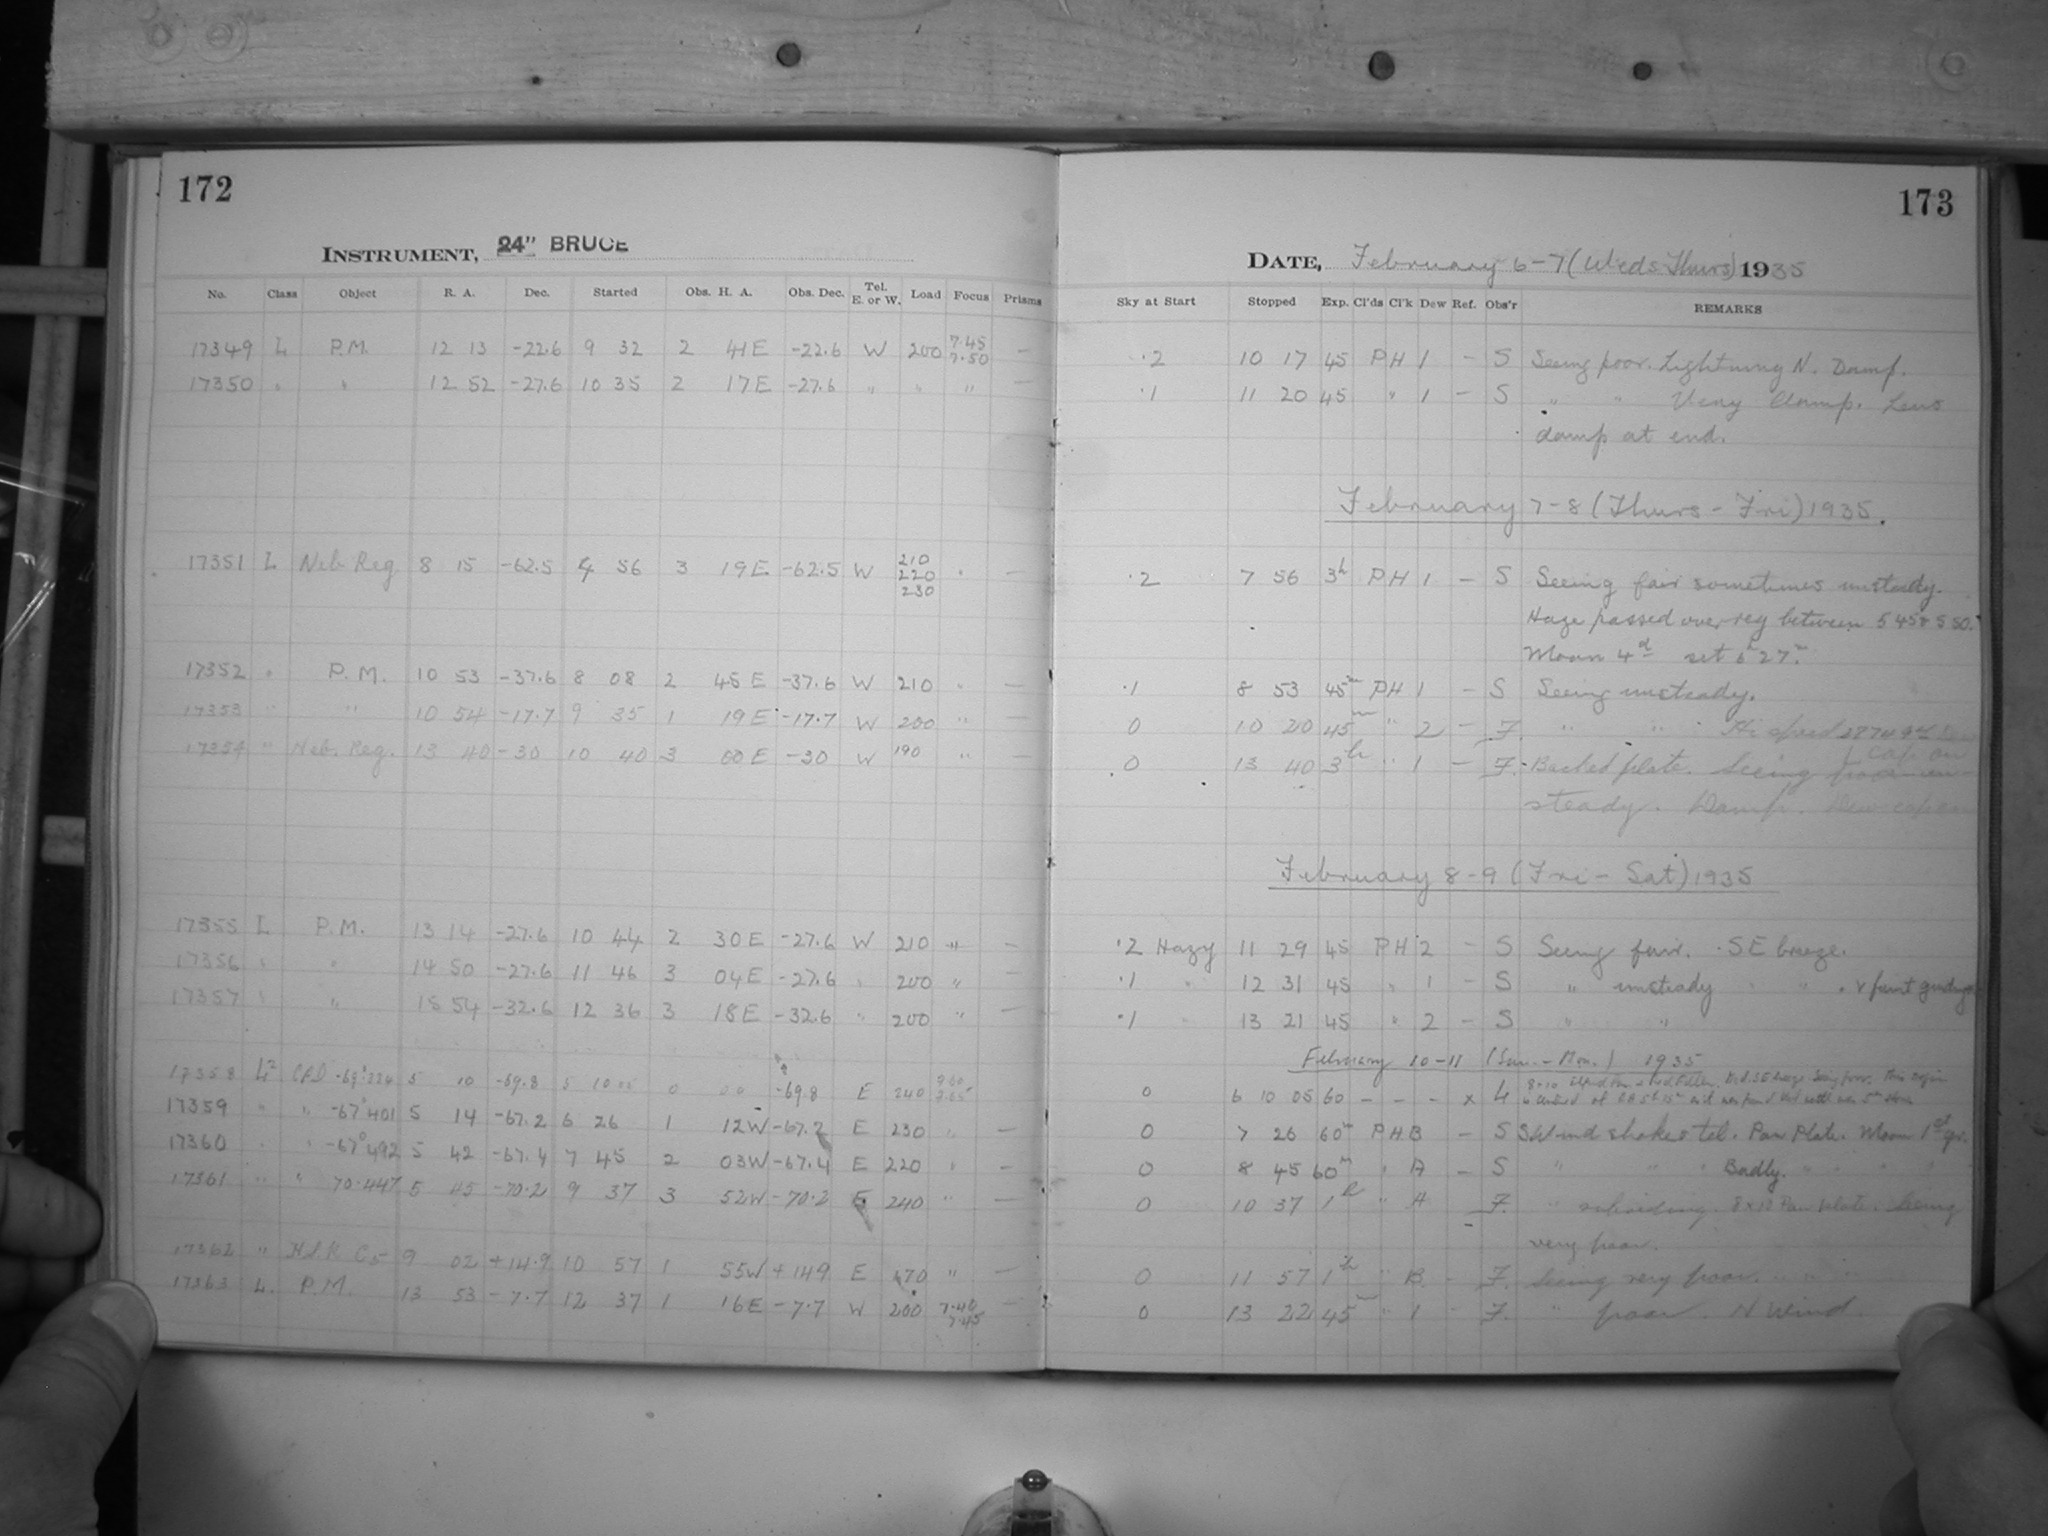 172
INSTRUMENT, 24" BRUCE
No. Class Object R. A. Dec. Started Obs. H. A. Obs. Dec. Tel. E. or W. Load Focus Prisms
17349 L P.M. 12 13 -22.6 9 32 2 41E -22.6 W 200 7.45 7.50 —
17350 " " 12 52 -27.6 10 35 2 17E -27.6 " " " —
17351 L Neb. Reg. 8 15 -62.5 4 56 3 19E -62.5 W 210 220 230 " —
17352 " P.M. 10 53 -37.6 8 08 2 45E -37.6 W 210 " —
17353 " " 10 54 -17.7 9 35 1 19E -17.7 W 200 " —
17354 " Neb. Reg. 13 40 -30 10 40 3 00E -30 W 190 "
17355 L P.M. 13 14 -27.6 10 44 2 30E -27.6 W 210 " —
17356 " " 14 50 -27.6 11 46 3 04E -27.6 " 200 "
17357 " " 15 54 -32.6 12 36 3 18E -32.6 " 200 " —
17358 5 10 -69.8 5 10 0 00 -69.8 E 240
17359 " " -67°401 5 14 -67.2 6 26 1 12W -67.2 E 230 " —
17360 " " -67°492 5 42 -67.4 7 45 2 03W -67.4 E 220 " —
17361 " " 70.447 5 45 -70.2 9 37 3 52W -70.2 E 240 " —
17362 " 9 02 +14.9 10 57 1 55W +149 E 170 " —
17363 L. P.M. 13 53 -7.7 12 37 1 16E -7.7 W 200 7.40 7.45 —
173
DATE, February 6-7 (Weds-Thurs) 1935
Sky at Start Stopped Exp. Cl'ds Cl'k Dew Ref. Obs'r REMARKS
.2 10 17 45 PH 1 – S Seeing poor. Lightning N. Damp.
.1 11 20 45 " 1 – S " " Very damp. Lens
damp at end.
February 7-8 (Thurs - Fri) 1935.
.2 7 56 3h PH 1 – S Seeing fair sometimes unsteady.
Haze passed over reg between 5 45 & 5 50.
Moon 4d set 6h 27m.
.1 8 53 45m PH 1 – S Seeing unsteady.
0 10 20 45m " 2 – F. " "
0 13 40 3h " 1 – F. Backed plate. Seeing
steady. Damp. Dew cap on
February 8-9 (Fri - Sat) 1935
.2 Hazy 11 29 45 PH 2 – S Seeing fair. SE breeze.
.1 " 12 31 45 " 1 – S " unsteady " " . v faint
.1 " 13 21 45 " 2 – S " "
February 10-11 (Sun. - Mon.) 1935
0 6 10 05 60 – – – x
0 7 26 60m PH B – S S. Wind shakes tel. Pan Plate. Moon 1st qr.
0 8 45 60m " A – S " " " Badly. " " " "
0 10 37 1h " A F. " 8x10 Pan plate. Seeing
very poor.
0 11 57 1h " B – F. Seeing very poor. " "
0 13 22 45m " 1 – F. " poor. N Wind.